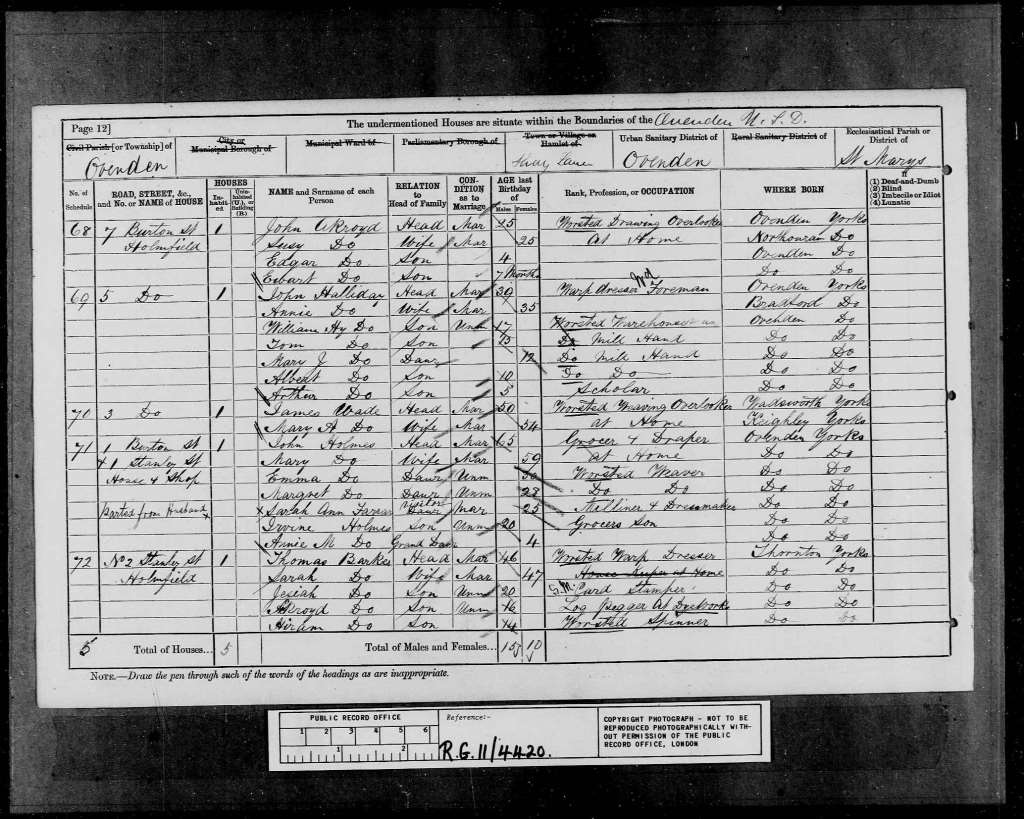 Page 12] The undermentioned Houses are situate within the Boundaries of the Ovenden U. S. D.
Civil Parish [or Township] of City or Municipal Borough of Municipal Ward of Parliamentary Borough of Town or Village or Hamlet of Urban Sanitary District of Rural Sanitary District of Ecclesiastical Parish or District of
Ovenden Lane Ovenden St Marys
No. of Schedule ROAD, STREET, &c., and No. or NAME of HOUSE HOUSES Inhabited Uninhabited (U.), or Building (B.) NAME and Surname of each Person RELATION to Head of Family CONDITION as to Marriage AGE last Birthday of Males Females Rank, Profession, or OCCUPATION WHERE BORN If (1) Deaf-and-Dumb (2) Blind (3) Imbecile or Idiot (4) Lunatic
68 7 Burton St 1 John Akroyd Head Mar 25 Worsted Drawing Overlooker Ovenden Yorks
Holmfield Susy Do Wife Mar 25 At Home Northouram Do
Edgar Do Son 4 Ovenden Do
Do Son 7 Months Do Do
69 5 Do 1 John Halliday Head Mar 39 Warp dresser Foreman Ovenden Yorks
Annie Do Wife Mar 35 Bradford Do
William Hy Do Son Unm 17 Worsted Ovenden Do
Tom Do Son 13 Do Mill Hand Do Do
Mary J Do Daur 12 Do Mill Hand Do Do
Albert Do Son 10 Do Do Do Do
Arthur Do Son 5 Scholar Do Do
70 3 Do 1 James Waite Head Mar 50 Worsted Weaving Overlooker Wadsworth Yorks
Mary A Do Wife Mar 54 at Home Keighley Yorks
71 1 Burton St 1 John Holmes Head Mar 65 Grocer & Draper Ovenden Yorks
& 1 Stanley St Mary Do Wife Mar 59 At Home Do Do
House & Shop Emma Do Daur Unm 30 Worsted Weaver Do Do
Margret Do Daur Unm 28 Do Do Do Do
Parted from Husband x x Sarah Ann Visitor Daur Mar 25 Milliner & Dressmaker Do Do
Irvine Holmes Son Unm 20 Grocers Son Do Do
Annie M Do Grand Daur 4 Do Do
72 No 2 Stanley St 1 Thomas Barker Head Mar 46 Worsted Warp Dresser Thornton Yorks
Holmfield Sarah Do Wife Mar 47 House Keeper at Home Do Do
Jesiah Do Son Unm 20 Card Stamper Do Do
Akroyd Do Son Unm 16 Log At Dyeworks Do Do
Hiram Do Son 14 Worsted Spinner Do Do
5 Total of Houses... 5 Total of Males and Females... 15 10
NOTE.—Draw the pen through such of the words of the headings as are inappropriate.
PUBLIC RECORD OFFICE
1 2 3 4 5 6
1 2
Reference:-
R.G. 11/4420.
COPYRIGHT PHOTOGRAPH - NOT TO BE
REPRODUCED PHOTOGRAPHICALLY WITH-
OUT PERMISSION OF THE PUBLIC
RECORD OFFICE, LONDON